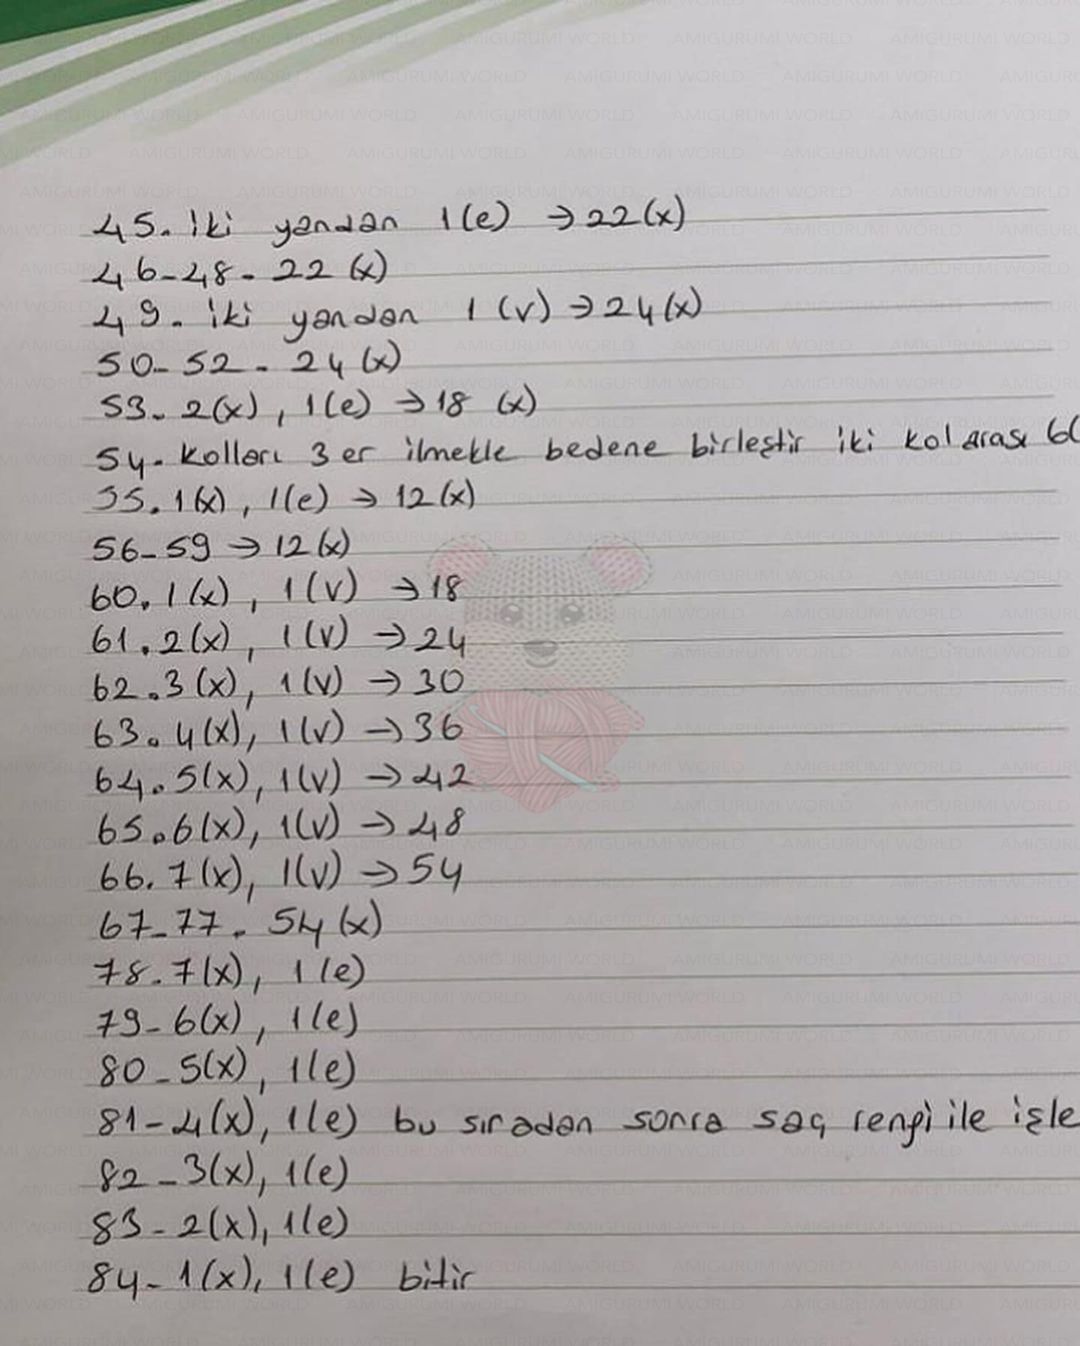 45. iki yandan 1(e) → 22(x)
46-48- 22 (x)
49. iki yandan 1 (v) → 24(x)
50-52 - 24 (x)
53- 2(x), 1(e) → 18 (x)
54- Kolları 3 er ilmekle bedene birleştir iki kol arası 6(
55. 1(x), 1(e) → 12(x)
56-59 → 12(x)
60. 1(x), 1(v) → 18
61. 2(x), 1(v) → 24
62. 3(x), 1(v) → 30
63. 4(x), 1(v) → 36
64. 5(x), 1(v) → 42
65. 6(x), 1(v) → 48
66. 7(x), 1(v) → 54
67-77. 54 (x)
78. 7(x), 1(e)
79- 6(x), 1(e)
80- 5(x), 1(e)
81- 4(x), 1(e) bu sıradan sonra saç rengi ile işle
82- 3(x), 1(e)
83- 2(x), 1(e)
84- 1(x), 1(e) bitir
AMIGURUMI WORLD